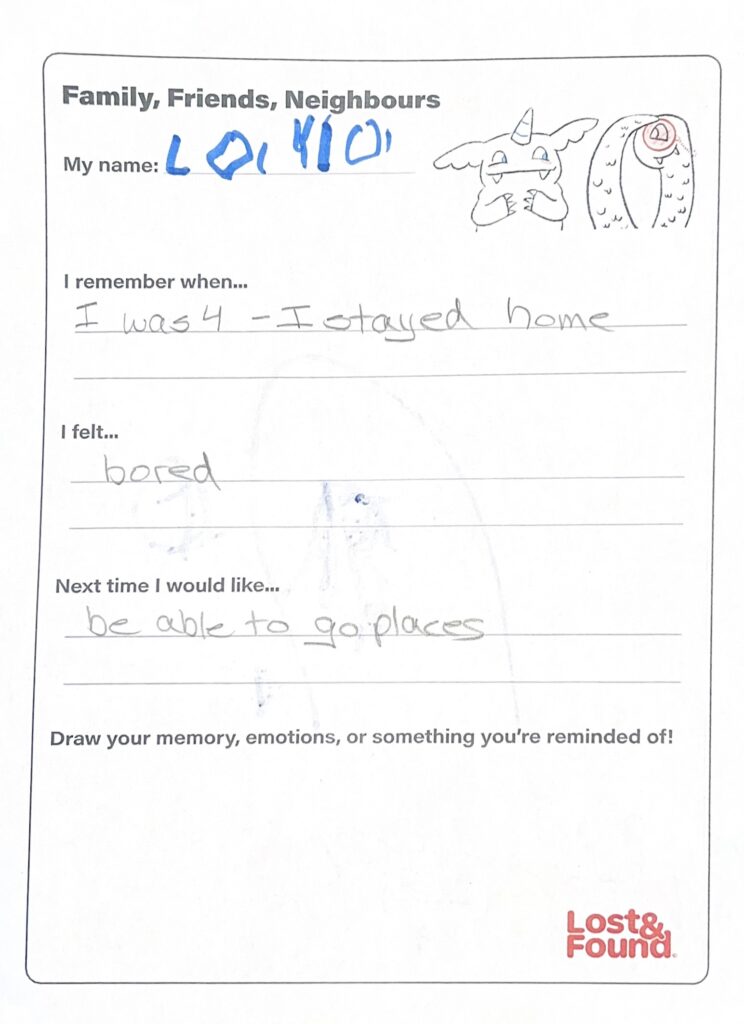 Family, Friends, Neighbours
My name:
I remember when...
I was 4 - I stayed home
I felt...
bored
Next time I would like...
be able to go places
Draw your memory, emotions, or something you're reminded of!
Lost&
Found.